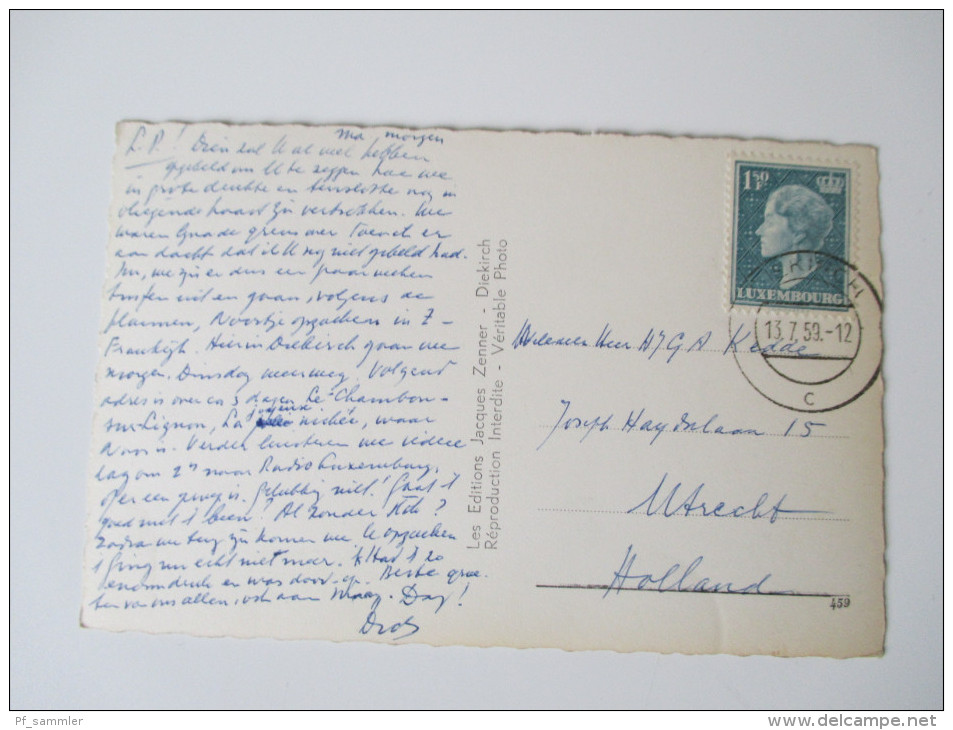 ma morgen
L.P! Dien zal U al wel hebben
opgebeld om U te zeggen hoe we
in grote drukte en tenslotte nog in
vliegende haast zijn vertrokken. We
waren goede grens over toen ik er
aan dacht dat ik U nog niet gebeld had.
Nu, we zijn er dus een paar weken
tussen uit en gaan, volgens de
plannen, Noortje opzoeken in Z-
Frankrijk. Hier in Diekirch gaan we
morgen, Dinsdag weer weg. Volgend
adres is over een 3 dagen Le Chambon-
sur-Lignon, La joyeuse nichée, waar
Noor is. Verder luisteren we iedere
dag om naar Radio Luxemburg,
of er een is. Gelukkig niet! Gaat 't
goed met 't been? Al zonder stok?
Zodra we terug zijn komen we U opzoeken
't ging nu echt niet meer. 'k Had 't zo
druk en was doodop. Beste groe-
ten van ons allen, ook aan Maay. Dag!
Les Editions Jacques Zenner - Diekirch
Réproduction Interdite - Véritable Photo
1.50 F
LUXEMBOURG
13.7.59.-12
C
Heer H J G A Kedde
Joseph Haydnlaan 15
Utrecht
Holland
459
Pf_sammler
www.delcampe.net